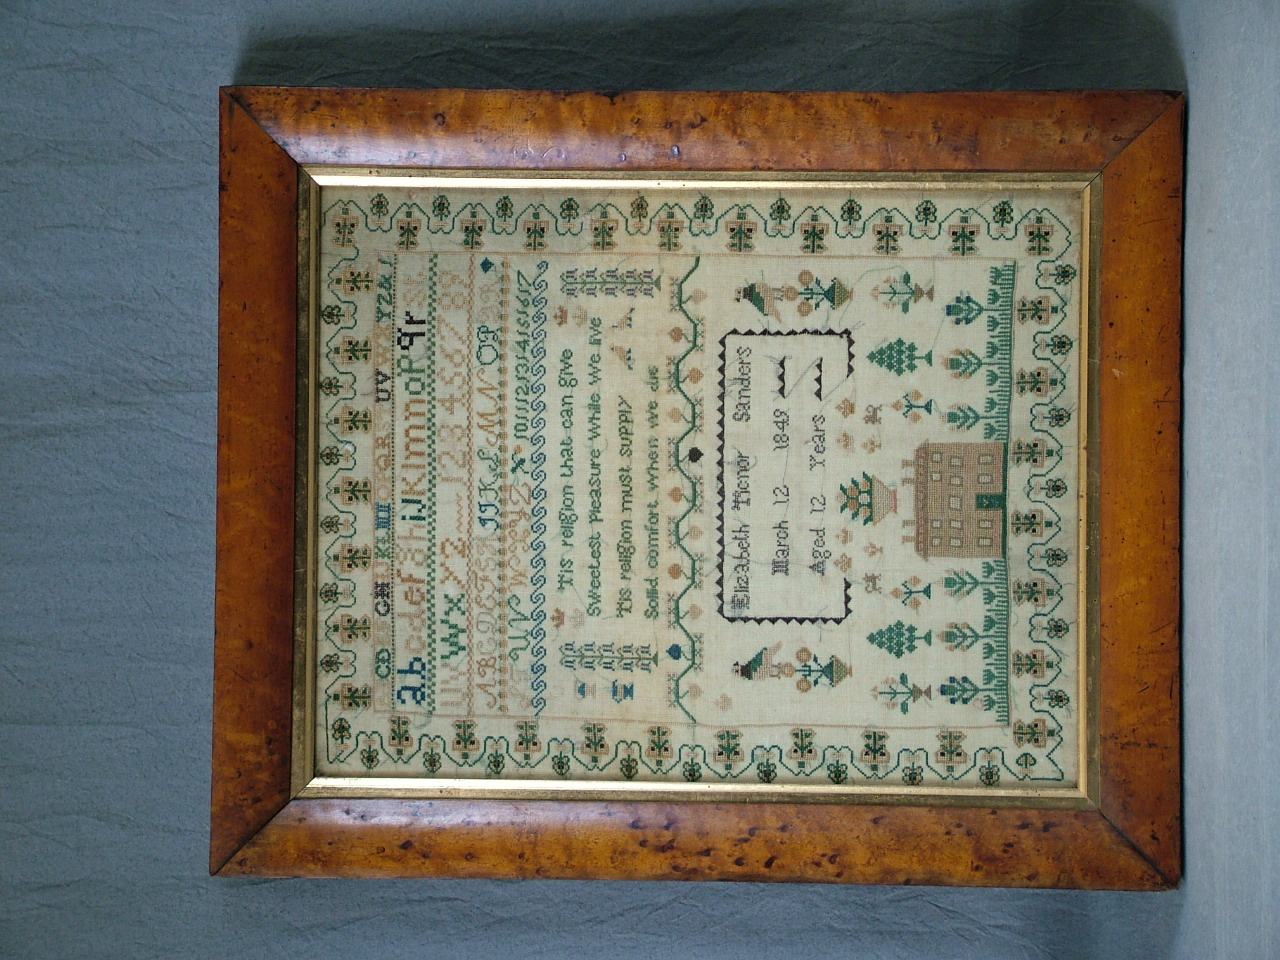 CD GH JKLM OPQRS UVW YZ&
abcdefghijklmnopqr
UVWXYZ 123456789
ABCDEFGH IJKLMNOP
UVWXYZ 10 11 12 13 14 15 16 17
Tis religion that can give
Sweetest Pleasure while we live
Tis religion must supply
Sollid comfort when we die
Elizabeth Sanders
March 12 1849
Aged 12 Years